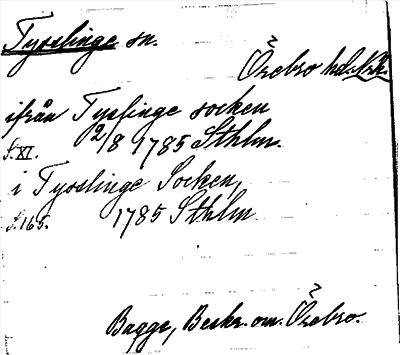 Tysslinge sn.
Örebro hd. Nke.
ifrån Tyslinge socken
S. XI. 2/8 1785 Sthlm.
i Tysslinge Socken,
S. 165. 1785 Sthlm
Bagge, Beskr. om. Örebro.